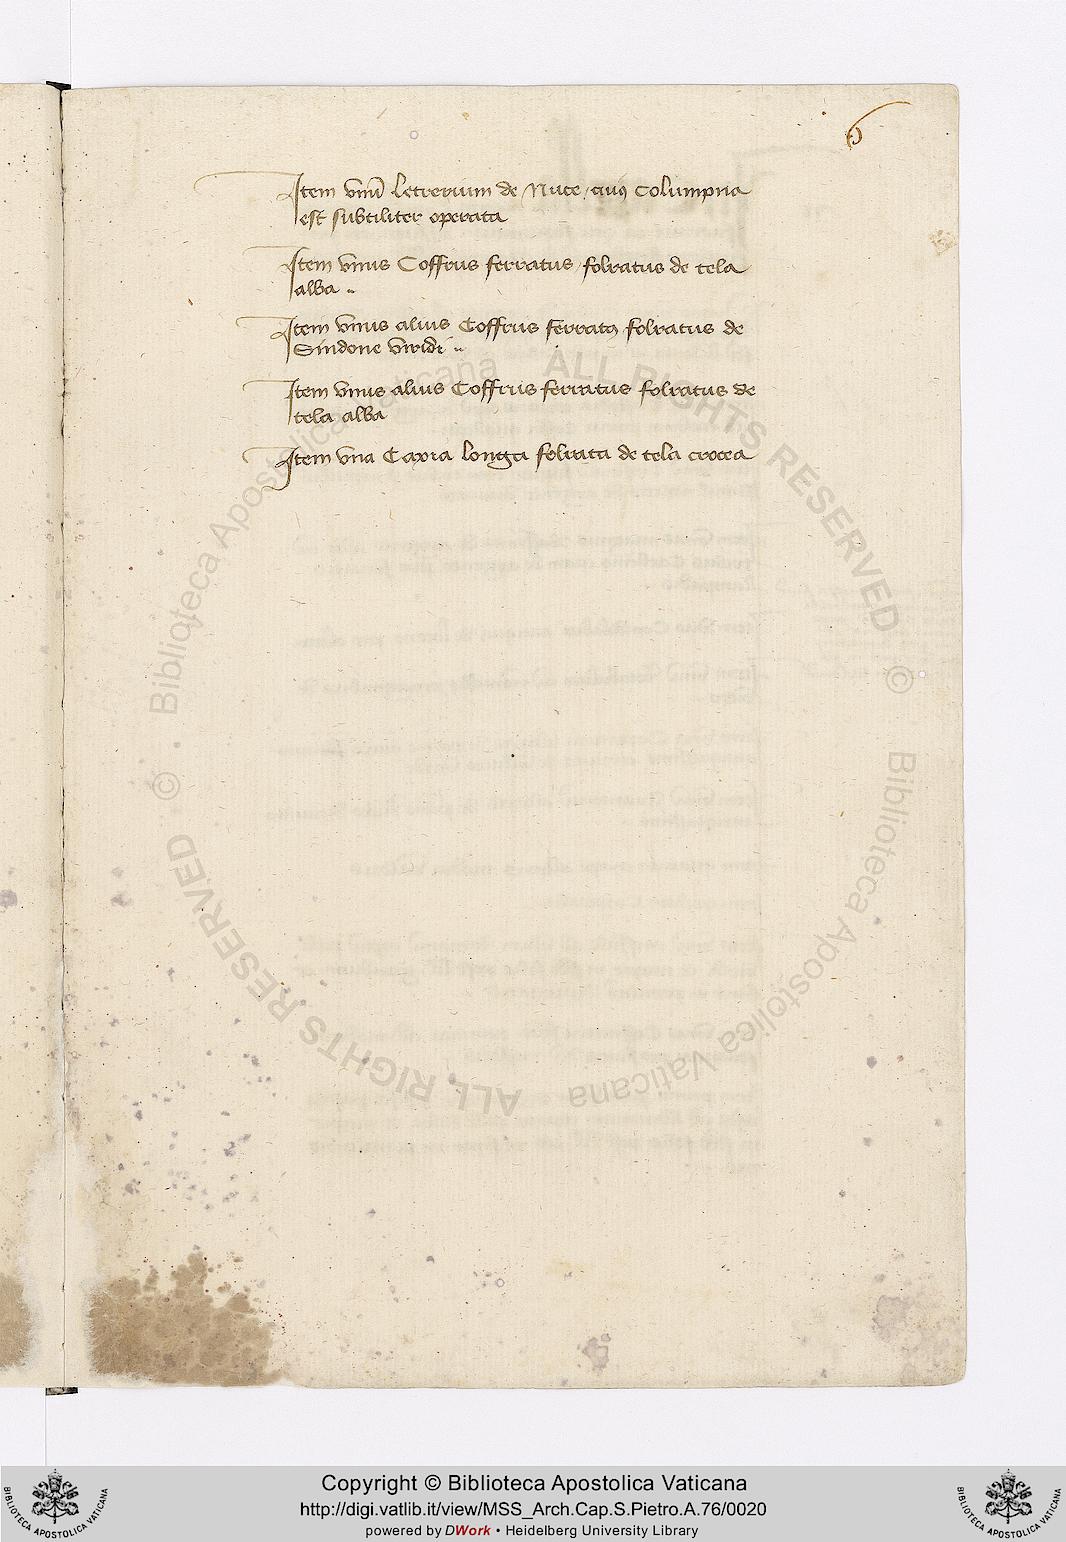 6
Item vnū letrerium de Nuce cuiꝰ Columpna
est subtiliter operata
Item vnus Coffrus ferratus folratus de tela
alba
Item vnus alius Coffrus ferratꝰ folratus de
Sindone viridi
Item vnus alius Coffrus ferratus folratus de
tela alba
Item vna Caxia longa folrata de tela crocea
© Biblioteca Apostolica Vaticana ALL RIGHTS RESERVED
© Biblioteca Apostolica Vaticana ALL RIGHTS RESERVED
Copyright © Biblioteca Apostolica Vaticana
http://digi.vatlib.it/view/MSS_Arch.Cap.S.Pietro.A.76/0020
powered by DWork • Heidelberg University Library
BIBLIOTECA APOSTOLICA VATICANA
BIBLIOTECA APOSTOLICA VATICANA